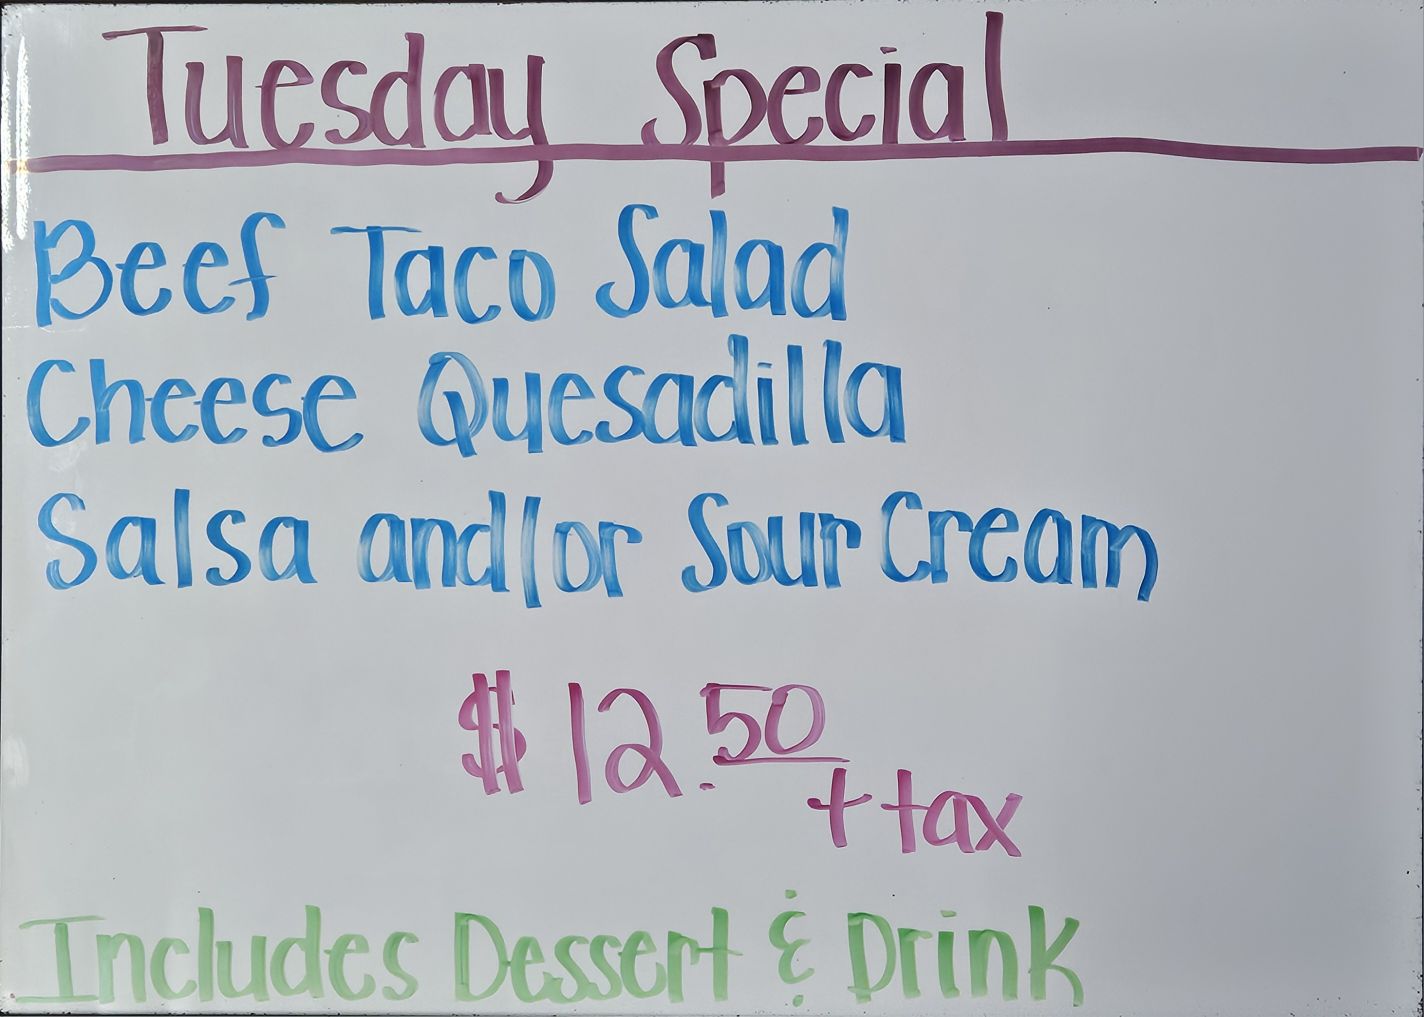 Tuesday Special
Beef Taco Salad
Cheese Quesadilla
Salsa and/or Sour Cream
$12.50
+ tax
Includes Dessert & Drink